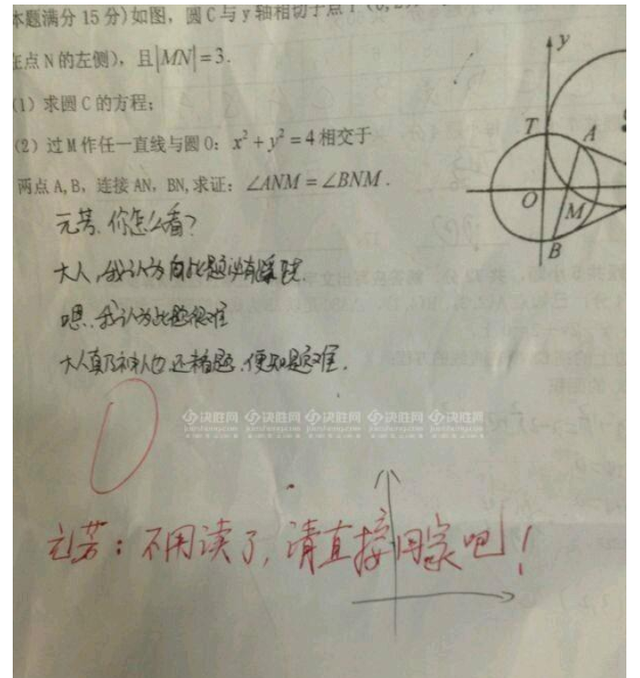 本题满分15分)如图, 圆C与y轴相切于点T(0,2),
在点N的左侧), 且|MN|=3.
(1) 求圆C的方程;
(2) 过M作任一直线与圆O: x²+y²=4相交于
两点A,B, 连接AN, BN, 求证: ∠ANM=∠BNM.
y
T
A
O
M
B
元芳, 你怎么看?
大人, 我认为此题没有
嗯, 我认为此题很难
大人真乃神人也, 还未看题, 便知题难.
0
决胜网 决胜网 决胜网 决胜网
元芳: 不用读了, 请直接回家吧!